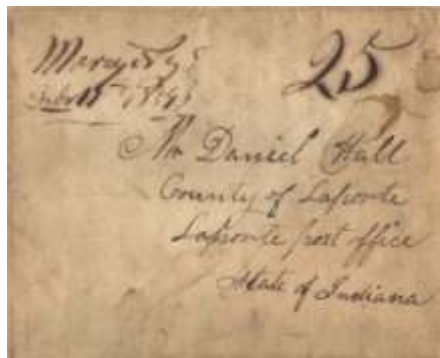 25
Mr Daniel Hall
County of Laporte
Laporte post office
State of Indiana